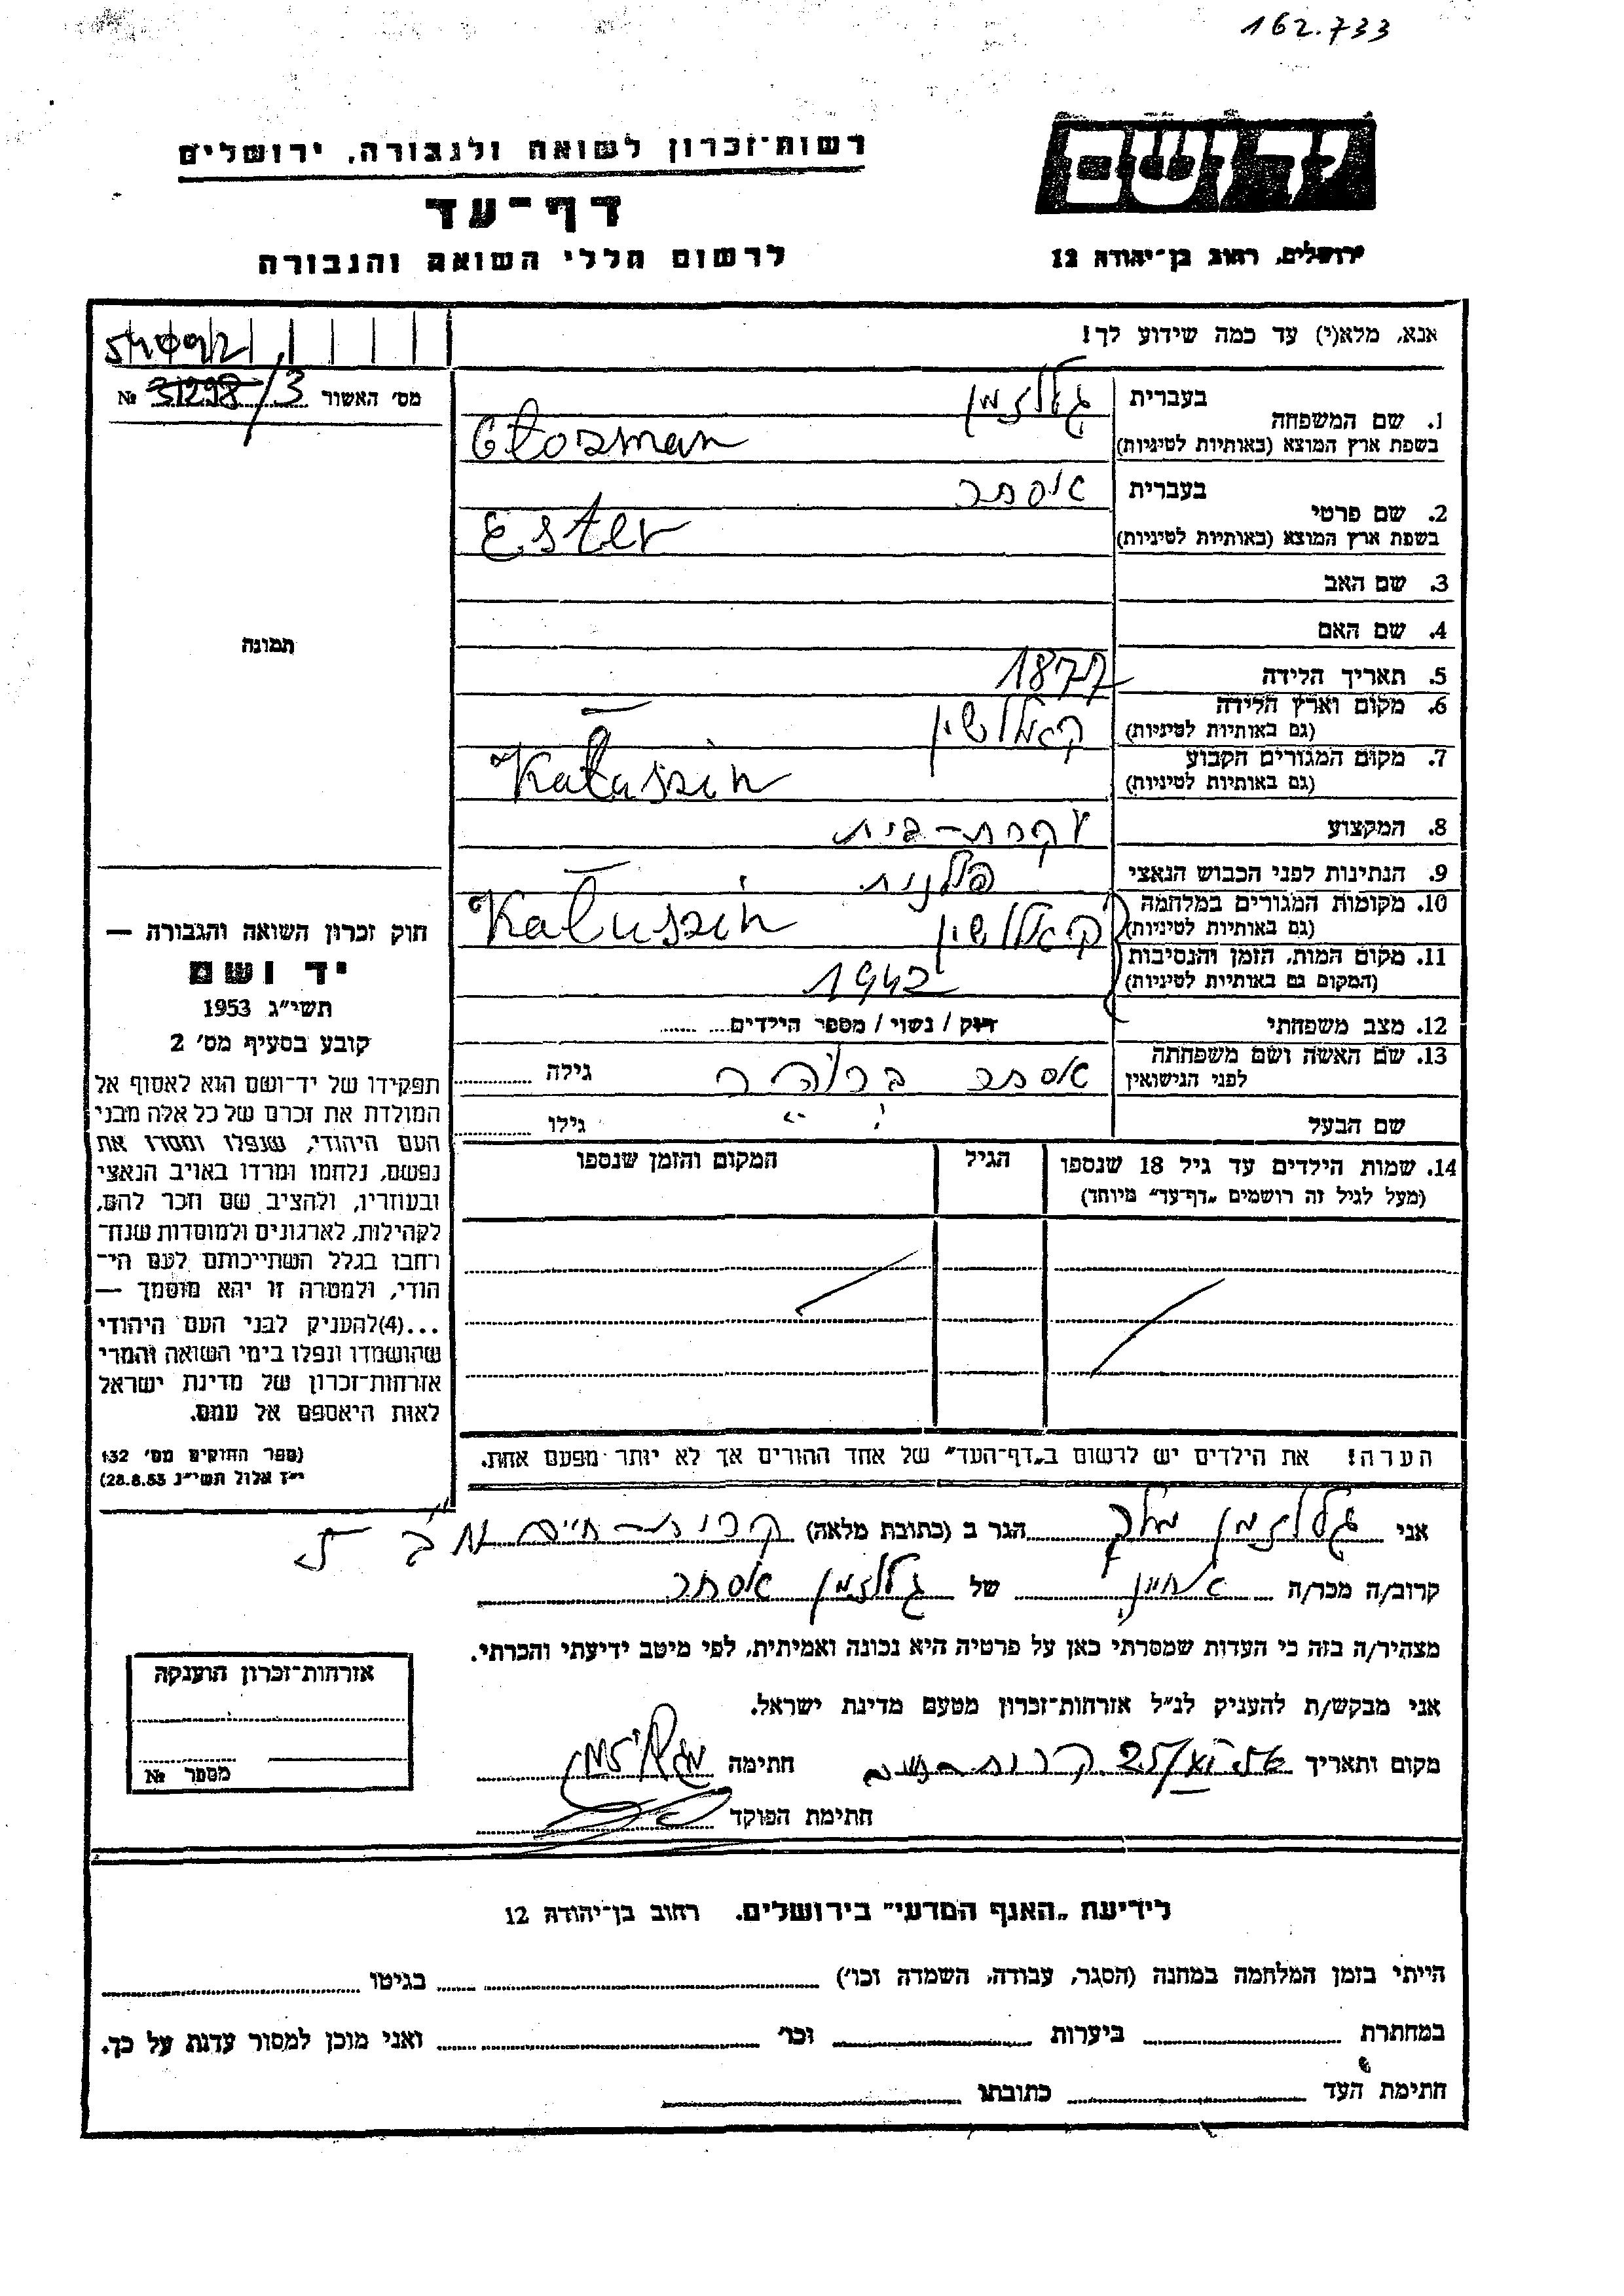 162.733
יד ושם
ירושלים, רחוב בן־יהודה 12
רשות־זכרון לשואה ולגבורה, ירושלים
דף־עד
לרשום חללי השואה והגבורה
אנא, מלא(י) עד כמה שידוע לך!
מס׳ האשור 31298/3 №
1. שם המשפחה
בעברית גלוזמן
בשפת ארץ המוצא (באותיות לטיניות) Glozman
2. שם פרטי
בעברית אסתר
בשפת ארץ המוצא (באותיות לטיניות) Ester
3. שם האב
4. שם האם
תמונה
5. תאריך הלידה 1877
6. מקום וארץ הלידה
(גם באותיות לטיניות) קאלושין
7. מקום המגורים הקבוע
(גם באותיות לטיניות) Kałuszin
8. המקצוע עקרת-בית
9. הנתינות לפני הכבוש הנאצי פולנית
10. מקומות המגורים במלחמה
(גם באותיות לטיניות) קאלושין Kałuszin
11. מקום המות, הזמן והנסיבות
(המקום גם באותיות לטיניות) 1942
12. מצב משפחתי רווק / נשוי / מספר הילדים
13. שם האשה ושם משפחתה
לפני הנישואין אסתר גילה
שם הבעל גילו
14. שמות הילדים עד גיל 18 שנספו הגיל המקום והזמן שנספו
(מעל לגיל זה רושמים „דף־עד״ מיוחד)
הערה! את הילדים יש לרשום ב„דף־העד״ של אחד ההורים אך לא יותר מפעם אחת.
חוק זכרון השואה והגבורה —
יד ושם
תשי״ג 1953
קובע בסעיף מס׳ 2
תפקידו של יד־ושם הוא לאסוף אל
המולדת את זכרם של כל אלה מבני
העם היהודי, שנפלו ומסרו את
נפשם, נלחמו ומרדו באויב הנאצי
ובעוזריו, ולהציב שם וזכר להם,
לקהילות, לארגונים ולמוסדות שנח־
רחבו בגלל השתייכותם לעם הי־
הודי, ולמטרה זו יהא מוסמך —
...(4)להעניק לבני העם היהודי
שהושמדו ונפלו בימי השואה והמרי
אזרחות־זכרון של מדינת ישראל
לאות היאספם אל עמם.
(ספר החוקים מס׳ 132
י״ז אלול תשי״ג 28.8.53)
אני גלוזמן הגר ב (כתובת מלאה) קרית-חיים
קרוב/ה מכר/ה אחיין של גלוזמן אסתר
מצהיר/ה בזה כי העדות שמסרתי כאן על פרטיה היא נכונה ואמיתית, לפי מיטב ידיעתי והכרתי.
אני מבקש/ת להעניק לנ״ל אזרחות־זכרון מטעם מדינת ישראל.
מקום ותאריך חתימה
חתימת הפוקד
אזרחות־זכרון הוענקה
מספר №
לידיעת „האגף המדעי״ בירושלים, רחוב בן־יהודה 12
הייתי בזמן המלחמה במחנה (הסגר, עבודה, השמדה וכו׳) בגיטו
במחתרת ביערות וכו׳ ואני מוכן למסור עדות על כך.
חתימת העד כתובתו